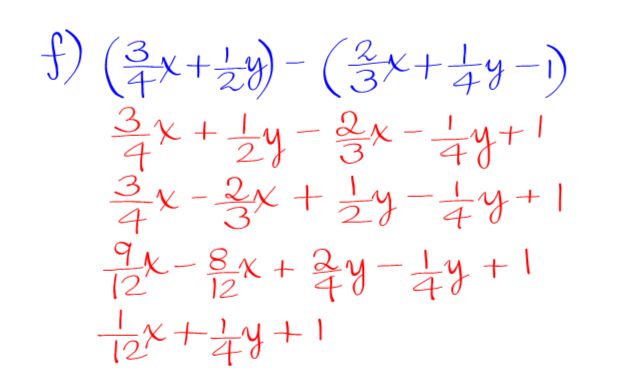 f) (3/4x + 1/2y) - (2/3x + 1/4y - 1)
3/4x + 1/2y - 2/3x - 1/4y + 1
3/4x - 2/3x + 1/2y - 1/4y + 1
9/12x - 8/12x + 2/4y - 1/4y + 1
1/12x + 1/4y + 1